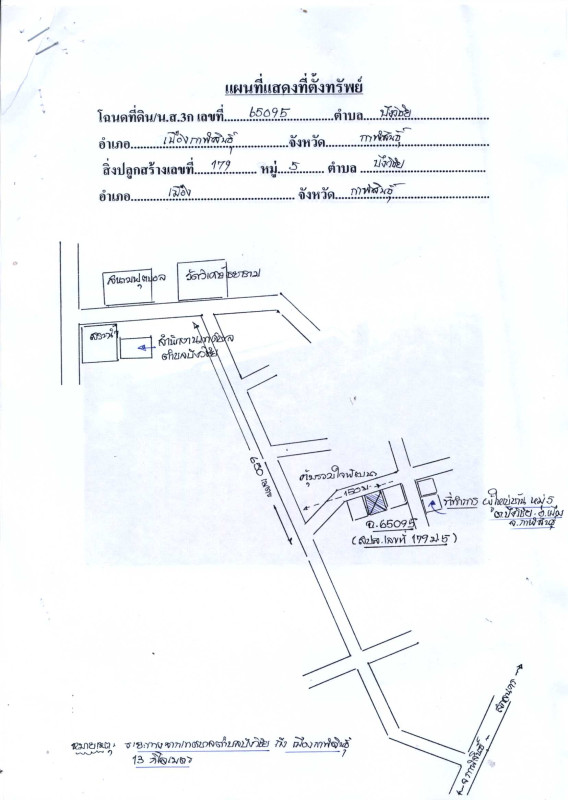 แผนที่แสดงที่ตั้งทรัพย์
โฉนดที่ดิน/น.ส.3ก เลขที่ 65095 ตำบล บึงวิชัย
อำเภอ เมืองกาฬสินธุ์ จังหวัด กาฬสินธุ์
สิ่งปลูกสร้างเลขที่ 179 หมู่ 5 ตำบล บึงวิชัย
อำเภอ เมือง จังหวัด กาฬสินธุ์
สนามฟุตบอล
วัดวิเศษไชยาราม
สระน้ำ
สำนักงานเทศบาล
ตำบลบึงวิชัย
650 เมตร
คุ้มรวมใจพัฒนา
150 ม.
ที่ทำการ ผู้ใหญ่บ้าน หมู่ 5
ต.บึงวิชัย อ.เมือง
จ.กาฬสินธุ์
ฉ.65095
(สปส.เลขที่ 179 ม 5)
สกลนคร
จ.กาฬสินธุ์
หมายเหตุ: ระยะทางจากเทศบาลตำบลบึงวิชัย ถึง เมืองกาฬสินธุ์
13 กิโลเมตร